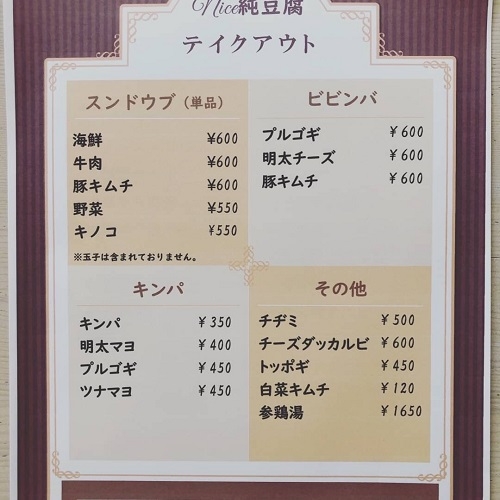 Nice純豆腐
テイクアウト
スンドウブ（単品）
海鮮 ¥600
牛肉 ¥600
豚キムチ ¥600
野菜 ¥550
キノコ ¥550
※玉子は含まれておりません。
ビビンバ
プルゴギ ¥600
明太チーズ ¥600
豚キムチ ¥600
キンパ
キンパ ¥350
明太マヨ ¥400
プルゴギ ¥450
ツナマヨ ¥450
その他
チヂミ ¥500
チーズダッカルビ ¥600
トッポギ ¥450
白菜キムチ ¥120
参鶏湯 ¥1650